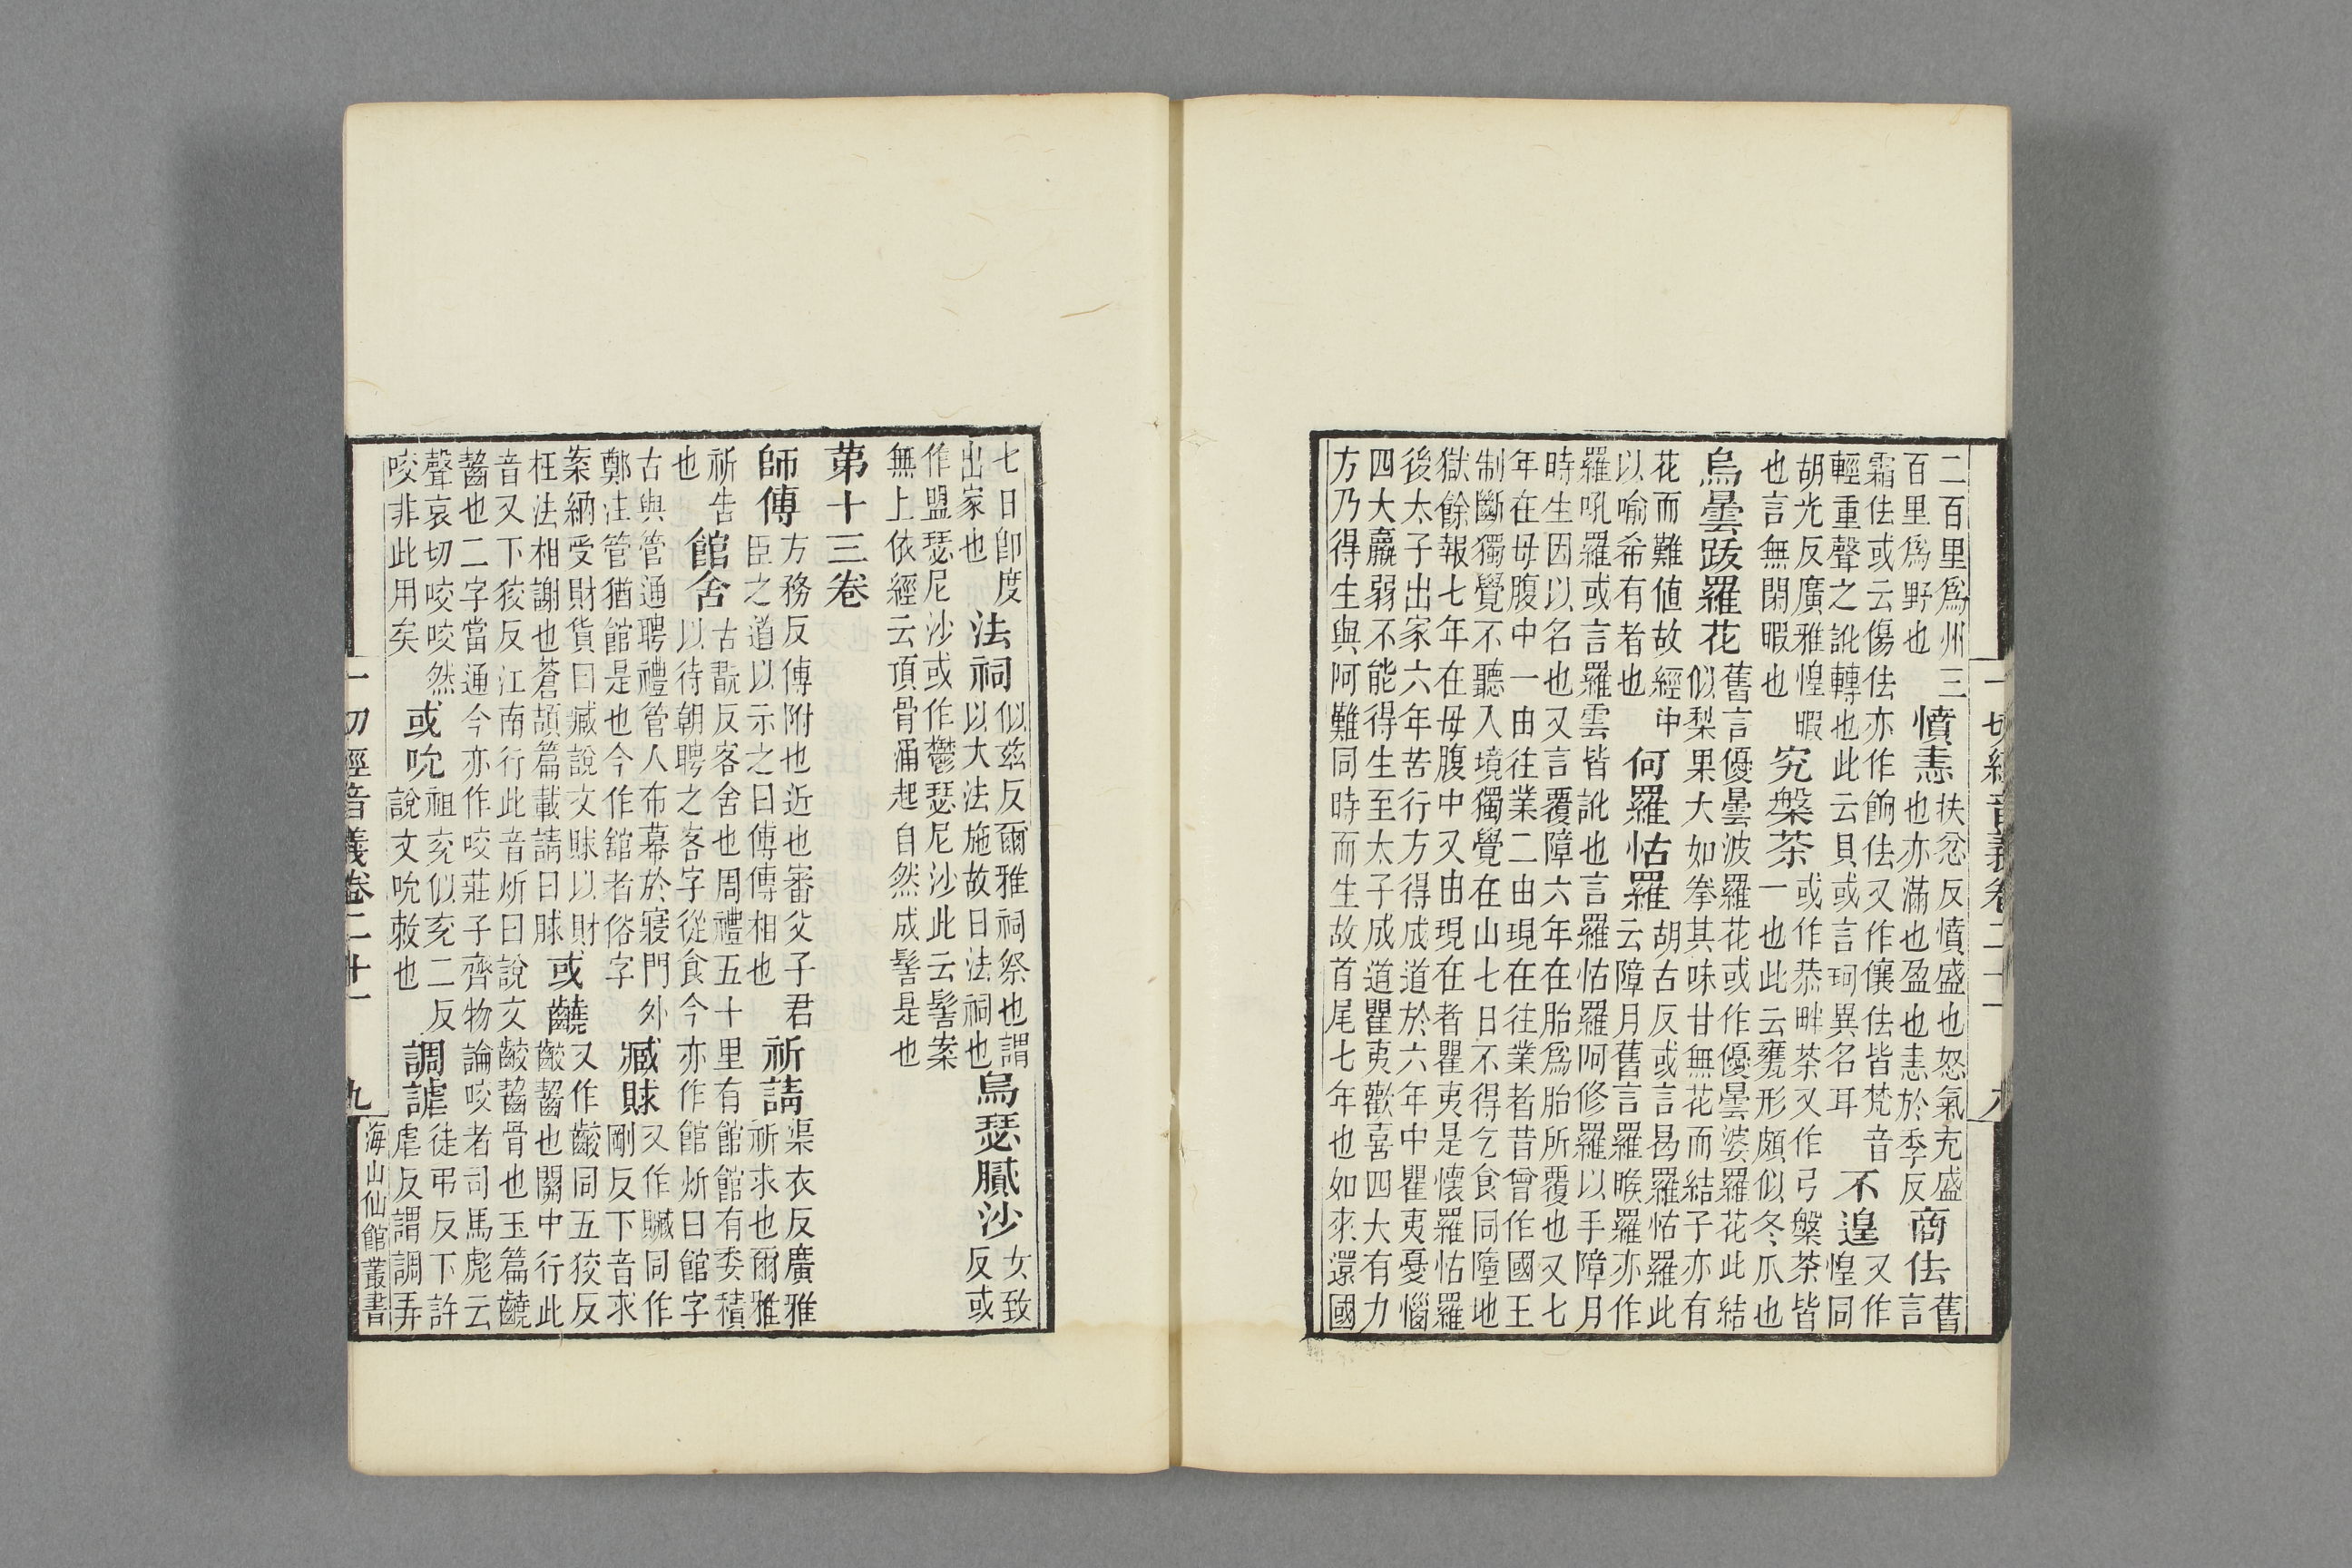 一切經音義卷二十一　八
二百里爲州三
百里爲野也
憤恚
扶忿反憤盛也怒氣充盛
也亦滿也盈也恚於季反
商佉
舊
言
霜佉或云傷佉亦作餉佉又作儴佉皆梵音
輕重聲之訛轉也此云貝或言珂異名耳
不遑
又作
惶同
胡光反廣雅惶暇
也言無閑暇也
究槃茶
或作恭畔茶又作弓槃茶皆
一也此云甕形頗似冬爪也
烏曇跋羅花
舊言優曇波羅花或作優曇婆羅花此結
似梨果大如拳其味甘無花而結子亦有
花而難値故經中
以喻希有者也
何羅怙羅
胡古反或言曷羅怙羅此
云障月舊言羅睺羅亦作
羅吼羅或言羅雲皆訛也言羅怙羅阿修羅以手障月
時生因以名也又言覆障六年在胎爲胎所覆也又七
年在母腹中一由往業二由現在往業者昔曾作國王
制斷獨覺不聽入境獨覺在山七日不得乞食同墮地
獄餘報七年在母腹中又由現在者瞿夷是懷羅怙羅
後太子出家六年苦行方得成道於六年中瞿夷憂惱
四大羸弱不能得生至太子成道瞿夷歡喜四大有力
方乃得生與阿難同時而生故首尾七年也如來還國
七日卽度
出家也
法祠
似兹反爾雅祠祭也謂
以大法施故曰法祠也
烏瑟膩沙
女致
反或
作盟瑟尼沙或作鬱瑟尼沙此云髻案
無上依經云頂骨涌起自然成髻是也
第十三卷
師傅
方務反傅附也近也審父子君
臣之道以示之曰傅傅相也
祈請
渠衣反廣雅
祈求也爾雅
祈告
也
館舍
古翫反客舍也周禮五十里有館館有委積
以待朝聘之客字從食今亦作館炘曰館字
古與管通聘禮管人布幕於寢門外
鄭注管猶館是也今作舘者俗字
臧賕
又作贓同作
剛反下音求
案納受財貨曰臧說文賕以財
枉法相謝也蒼頡篇載請曰賕
或䶧
又作齩同五狡反
齩齧也關中行此
音又下狡反江南行此音炘曰說文齩齧骨也玉篇䶧
齧也二字當通今亦作咬莊子齊物論咬者司馬彪云
聲哀切咬咬然
咬非此用矣
或吮
祖兖似兖二反
說文吮敕也
調謔
徒弔反下許
虐反謂調弄
一切經音義卷二十一　九
海山仙館叢書